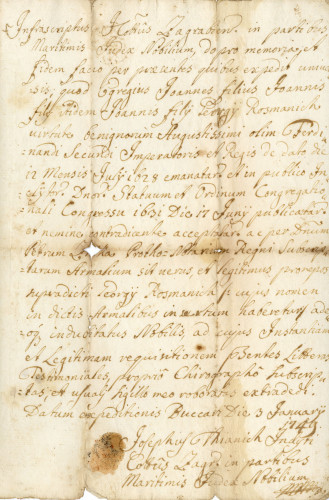 Infrascriptus I Cottus Zagrabien. in partibus
Maritimis Judex Nobilium, do pro memoria, et
fidem facio per præsentes quibus expedit univer
sis, quod Egregius Joannes filius Joannis
filij Joannis filij Georgij Rosmanich
virtute benignorum Augustissimi olim Ferdi
nandi Secundi Imperatoris et Regis de dato die
12 Mensis July 1628 emanatar. et in publico In
Dnor. Statuum et Ordinum Congrega
nali Congressu 1631 Die 17 Junij publicatar.
et nemine contradicente acceptar. ac per Dnum
Petrum Protho Notarium Regni
tarum Armalium sit verus, et legitimus
supradicti Georgij Rosmanich cujus nomen
in dictis Armalibus insertum haberetur ad
induditatus Nobilis ad cujus Instantiam
et Legitimam requisitionem Litteras
Testimoniales, proprio Chirographo subscrip
tas et usuali sigillo meo roboratas extradedi.
Datum expeditionis Buccari Die 3 January
Josephus Thianich Inclyti
Cottus Zagr. in partibus
Maritimis Judex Nobilium